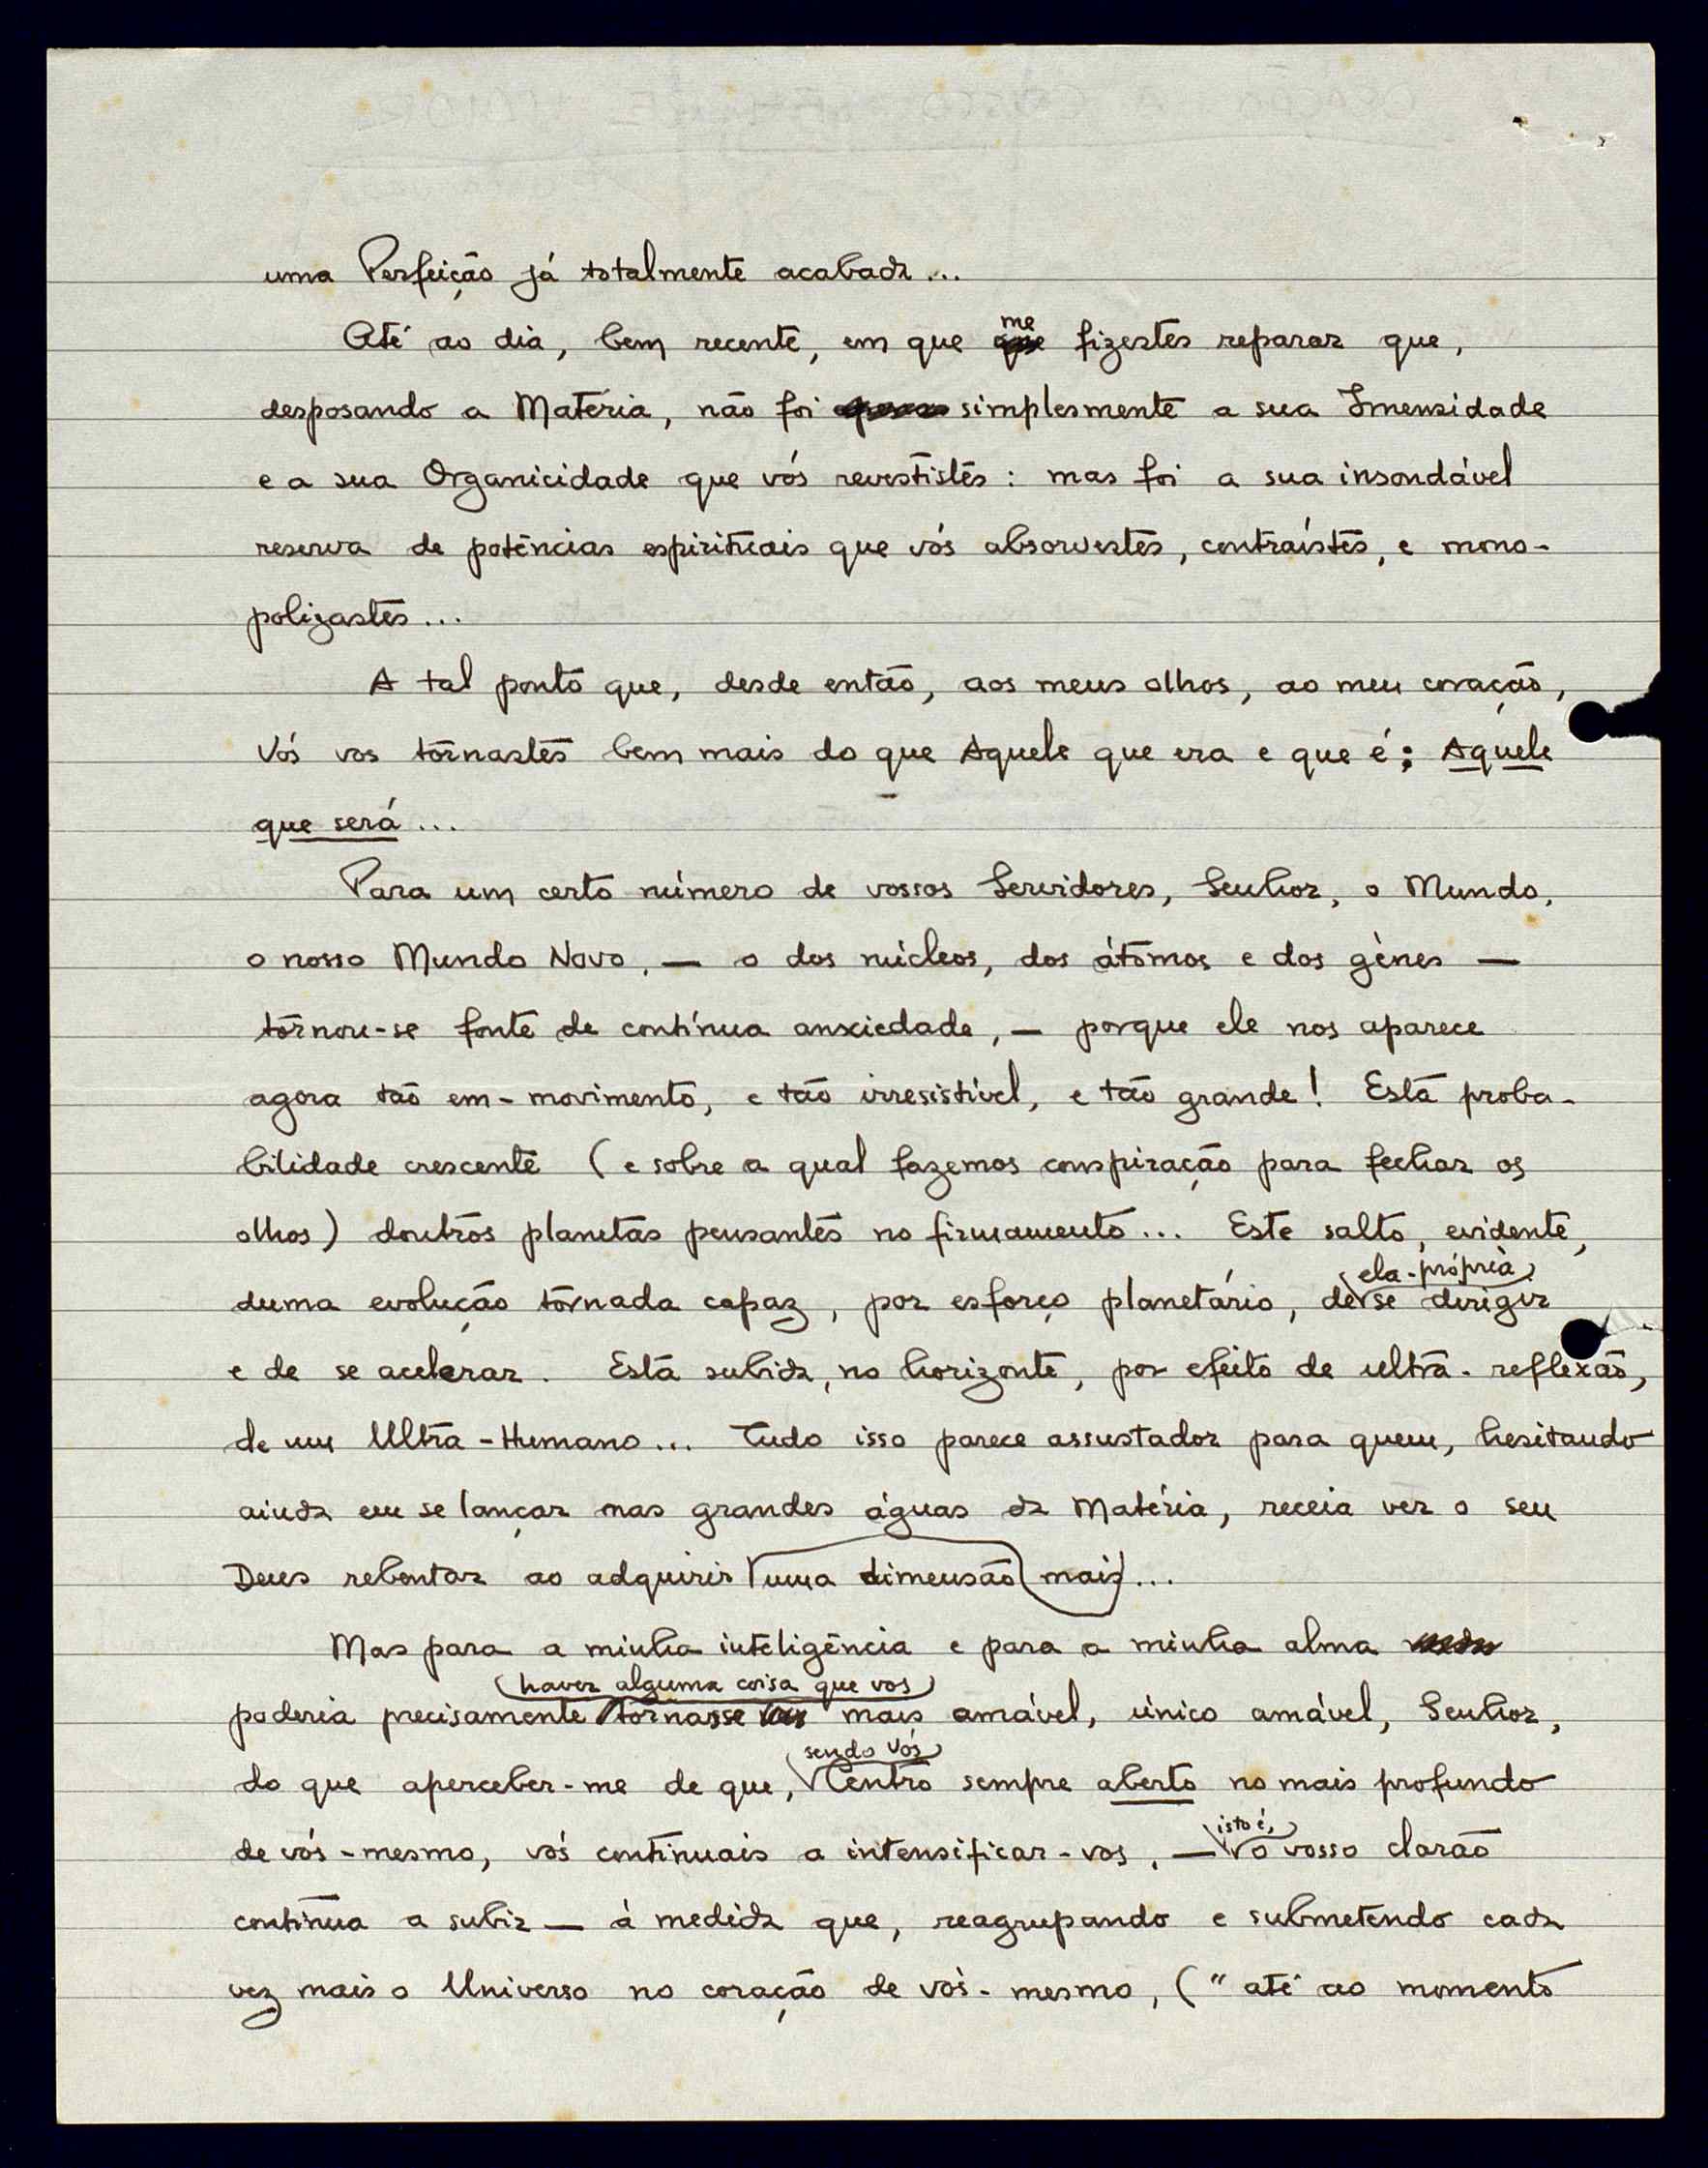 uma Perfeição já totalmente acabada...
Até ao dia, bem recente, em que me fizestes reparar que,
desposando a Matéria, não foi simplesmente a sua Imensidade
e a sua Organicidade que vós revestistes : mas foi a sua insondável
reserva de potências espirituais que vós absorvestes, contraístes, e mono-
polizastes...
A tal ponto que, desde então, aos meus olhos, ao meu coração,
Vós vos tornastes bem mais do que Aquele que era e que é; Aquele
que será...
Para um certo número de vossos Servidores, Senhor, o Mundo,
o nosso Mundo Novo, — o dos núcleos, dos átomos e dos gènes —
tornou-se fonte de contínua anxiedade, — porque ele nos aparece
agora tão em-movimento, e tão irresistível, e tão grande! Esta proba-
bilidade crescente (e sobre a qual fazemos conspiração para fechar os
olhos) doutros planetas pensantes no firmamento... Este salto, evidente,
ela-própria
duma evolução tornada capaz, por esforço planetário, de se dirigir
e de se acelerar. Esta subida, no horizonte, por efeito de ultra-reflexão,
de um Ultra-Humano... Tudo isso parece assustador para quem, hesitando
ainda em se lançar nas grandes águas da Matéria, receia ver o seu
Deus rebentar ao adquirir uma dimensão mais...
Mas para a minha inteligência e para a minha alma
haver alguma coisa que vos
poderia precisamente tornasse mais amável, único amável, Senhor,
sendo Vós
do que aperceber-me de que, Centro sempre aberto no mais profundo
isto é,
de vós-mesmo, vós continuais a intensificar-vos, — o vosso clarão
continua a subir — à medida que, reagrupando e submetendo cada
vez mais o Universo no coração de vós-mesmo, ("até ao momento